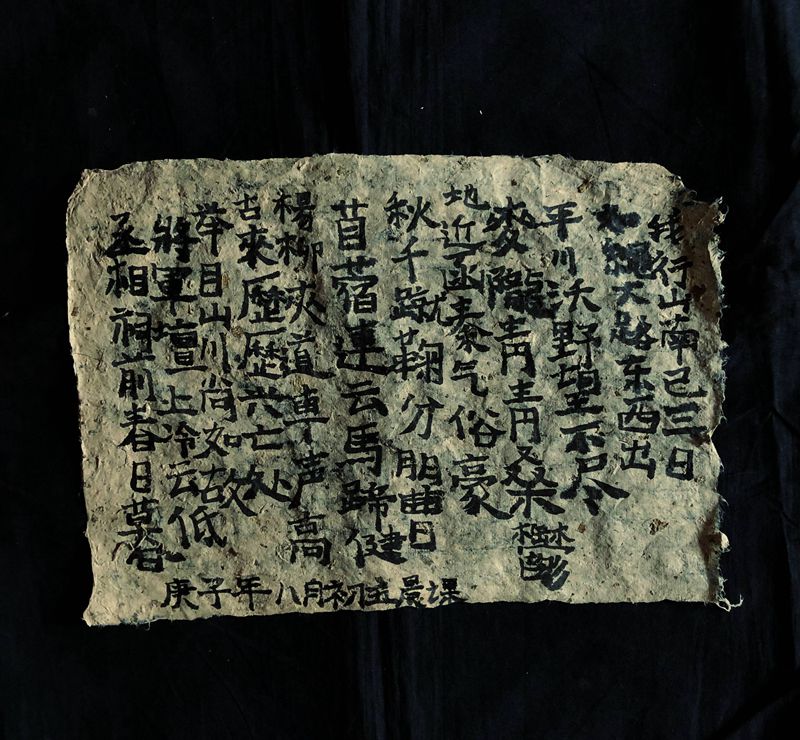 我行山南已三日
如繩大路东西出
平川沃野望不尽
麥隴青青桑鬱
地近函秦气俗豪
秋千蹴鞠分朋曹
苜蓿連云馬蹄健
楊柳夾道車声高
古來歷歷兴亡处
举目山川尚如故
將軍壇上冷云低
丞相祠前春日暮
庚子年八月初五晨课